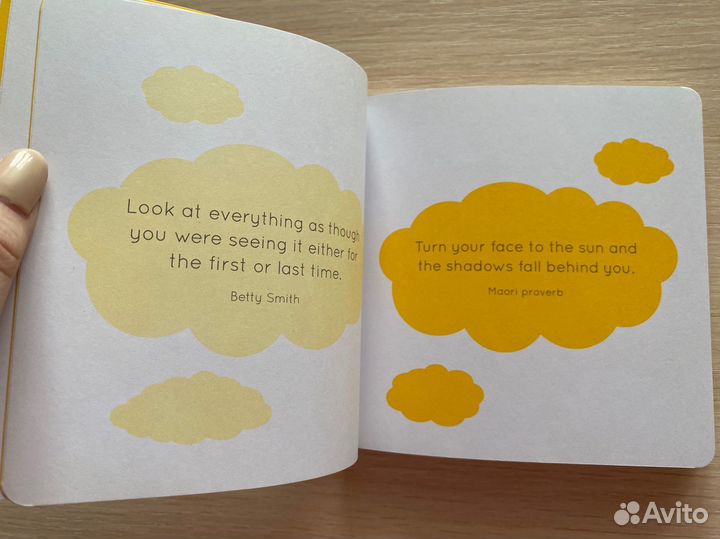 Look at everything as though
you were seeing it either for
the first or last time.
Betty Smith
Turn your face to the sun and
the shadows fall behind you.
Maori proverb
Avito